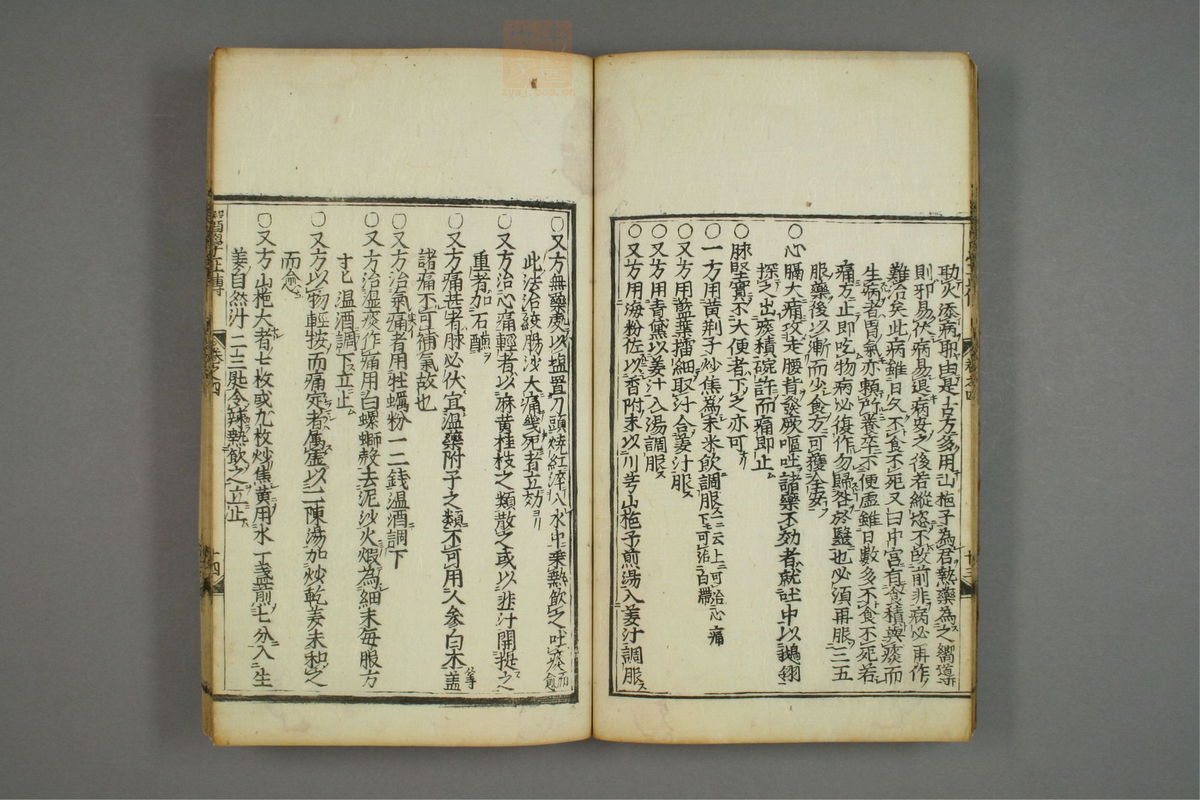 助火添病耶由是古方多用山梔子為君熱藥為之嚮導
則邪易伏病易退病安之後若縱恣不改前非病必再作
難治矣此病雖日久不食不死又曰中宮有食積與痰而
生病者胃氣亦賴所養卒不便虛雖日數多不食不死若
痛方止即吃物病必復作勿歸咎於醫也必須再服二五
服藥後以漸而少食方可獲全安
○心膈大痛攻走腰背發厥嘔吐諸藥不効者就吐中以鵝翎
探之出痰積碗許而痛即止
○脉堅實不大便者下之亦可
○一方用黄荆子炒焦為末米飲調服又云上可治心痛下可治白帶
○又方用藍葉擂細取汁合姜汁服
○又方用青黛以姜汁入湯調服
○又方用海粉佐以香附末以川芎山梔子煎湯入姜汁調服
○又方無藥處以塩置刀頭燒紅淬入水中乗熱飲之吐痰而愈
此法治絞腸沙大痛幾死者立効
○又方治心痛輕者以麻黄桂枝之類散之或以韭汁開提之
重者加石鹼
○又方痛甚者脉必伏宜温藥附子之類不可用人參白木蓋
諸痛不可補氣故也
○又方治氣痛者用牡蠣粉一二錢温酒調下
○又方治湿痰作痛用白螺螄殼去泥沙火煅為細末每服方
寸匕温酒調下立止
○又方以物輕按而痛定者属虚以二陳湯加炒乾姜末和之
而愈
○又方山梔大者七枚或九枚炒焦黄用水一盞煎七分入生
姜自然汁二三匙令辣熱飲之立止
醫學正傳
卷之四
十四